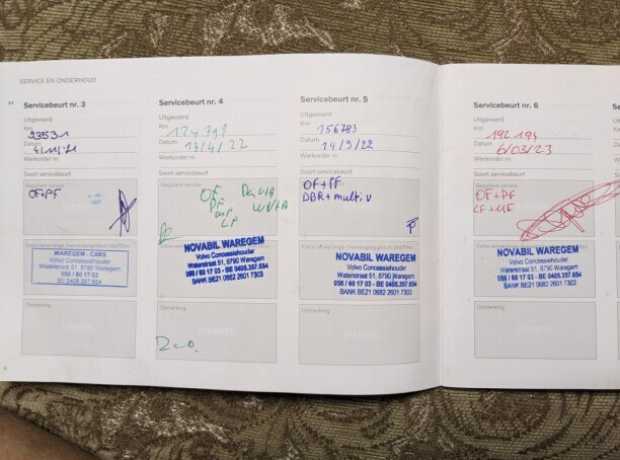 SERVICE EN ONDERHOUD
Servicebeurt nr. 3
Uitgevoerd
Km
Datum
Werkorder nr.
Soort servicebeurt
OF+PF
WAREGEM - CARS
Volvo Concessiehouder
056 / 60 17 03
Opmerking
Servicebeurt nr. 4
Uitgevoerd
Km
Datum 13/4/22
Werkorder nr.
Soort servicebeurt
OF
PF
LF
NOVABIL WAREGEM
Volvo Concessiehouder
Waterstraat 51, 8790 Waregem
056 / 60 17 03 - BE 0408.297.654
BANK BE21 0682 2601 7303
Opmerking
Servicebeurt nr. 5
Uitgevoerd
Km 156783
Datum 14/9/22
Werkorder nr.
Soort servicebeurt
OF+PF
DBR+multi v
NOVABIL WAREGEM
Volvo Concessiehouder
Waterstraat 51, 8790 Waregem
056 / 60 17 03 - BE 0408.297.654
BANK BE21 0682 2601 7303
Opmerking
Servicebeurt nr. 6
Uitgevoerd
Km 192 194
Datum 6/03/23
Werkorder nr.
Soort servicebeurt
OF+PF
NOVABIL WAREGEM
Volvo Concessiehouder
Waterstraat 51, 8790 Waregem
056 / 60 17 03 - BE 0408.297.654
BANK BE21 0682 2601 7303
Opmerking